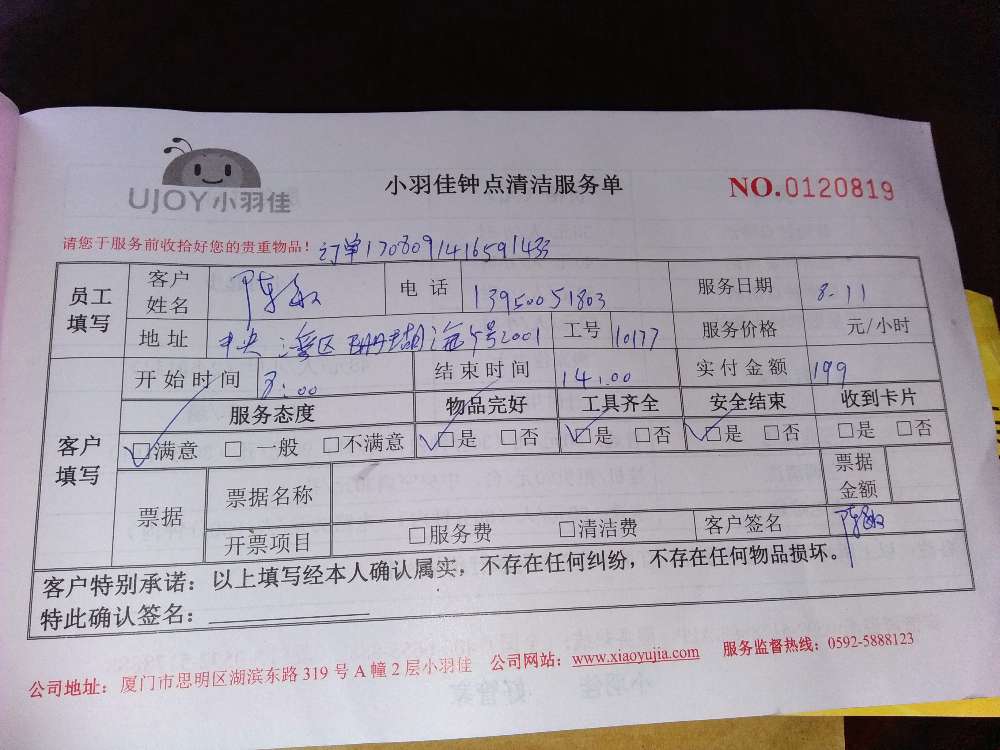 UJOY小羽佳
小羽佳钟点清洁服务单
NO.0120819
请您于服务前收拾好您的贵重物品！ 订单1708091416591433
员工填写 客户姓名 陈敏 电话 13950051803 服务日期 8.11
地址 中央湾区珊瑚海5号2001 工号 10177 服务价格 元/小时
客户填写 开始时间 8:00 结束时间 14:00 实付金额 199
服务态度 物品完好 工具齐全 安全结束 收到卡片
☑满意 □一般 □不满意 ☑是 □否 ☑是 □否 ☑是 □否 □是 □否
票据 票据名称 票据金额
开票项目 □服务费 □清洁费 客户签名 陈敏
客户特别承诺：以上填写经本人确认属实，不存在任何纠纷，不存在任何物品损坏。
特此确认签名：
公司地址：厦门市思明区湖滨东路319号A幢2层小羽佳 公司网站：www.xiaoyujia.com 服务监督热线：0592-5888123